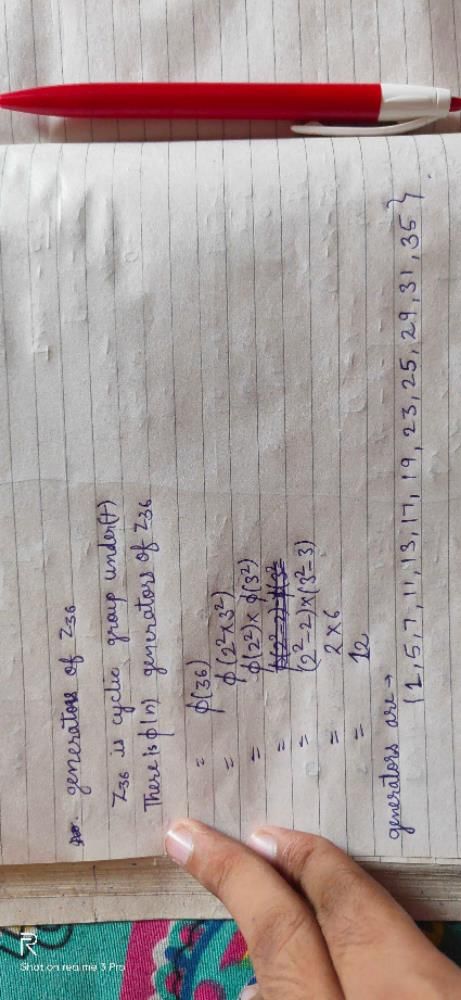 generators of Z36
Z36 is cyclic group under (+)
There is ϕ(n) generators of Z36
= ϕ(36)
= ϕ(2²×3²)
= ϕ(2²)×ϕ(3²)
=
= (2²-2)×(3²-3)
= 2×6
= 12
generators are →
{1,5,7,11,13,17,19,23,25,29,31,35}.
R
Shot on realme 3 Pro